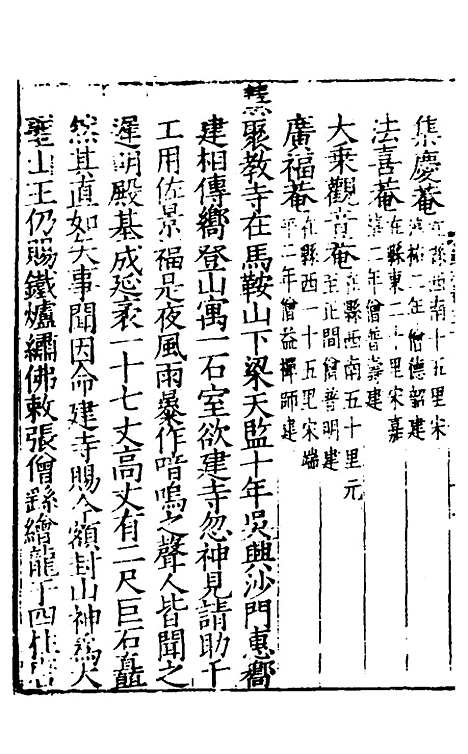 集慶菴在縣西南十五里宋
淳祐二年僧德韶建
法喜菴在縣東二十里宋嘉
熹二年僧普壽建
大乗觀音菴在縣西南五十里元
至正間僧普明建
廣福菴在縣西一十五里宋端
平二年僧益禪師建
慧聚教寺在馬鞍山下梁天監十年吳興沙門惠嚮
建相傳嚮登山寓一石室欲建寺忽神見請助千
工用佐景福是夜風雨暴作喑嗚之聲人皆聞之
遲明殿基成延袤一十七丈高丈有二尺巨石矗
然其直如矢事聞因命建寺賜今額封山神為大
聖山王仍賜鐵爐繡佛敕張僧繇繪龍于四柱